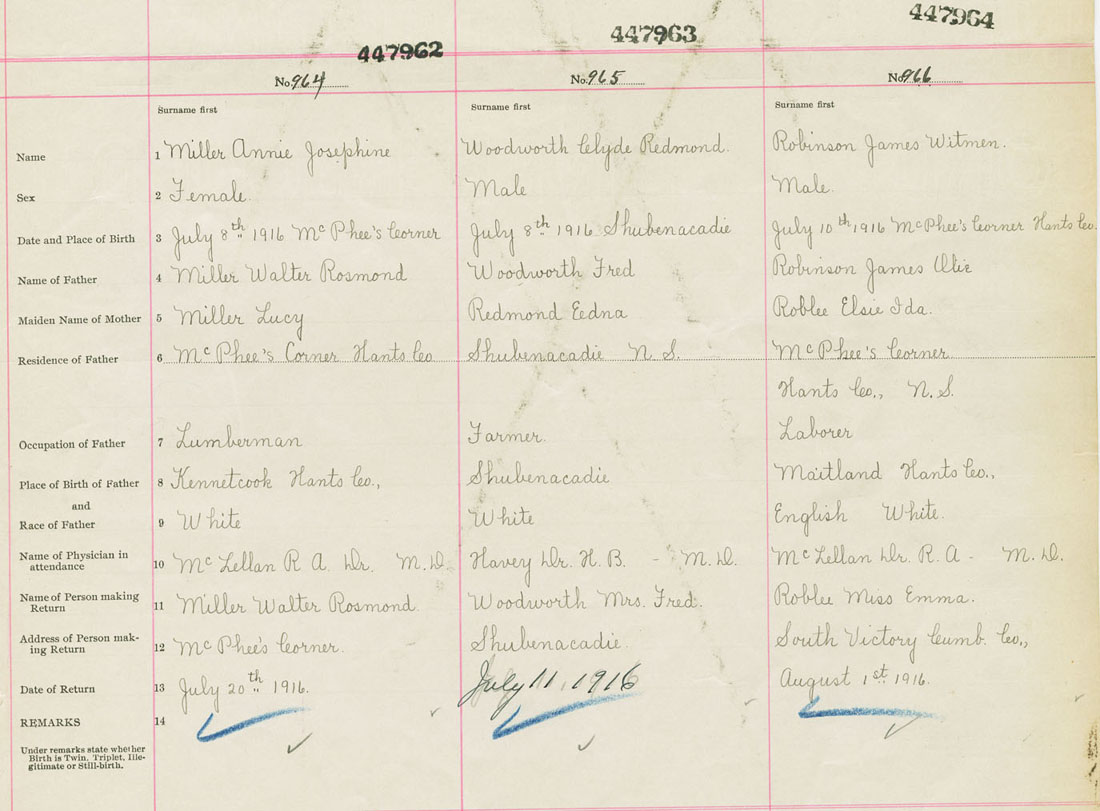 447962 447963 447964
No. 964 No. 965 No. 966
Surname first Surname first Surname first
Name 1 Miller Annie Josephine Woodworth Clyde Redmond. Robinson James Witmen.
Sex 2 Female. Male Male.
Date and Place of Birth 3 July 8th 1916 McPhee's Corner July 8th 1916 Shubenacadie July 10th 1916 McPhee's Corner Hants Co.
Name of Father 4 Miller Walter Rosmond Woodworth Fred Robinson James Olie
Maiden Name of Mother 5 Miller Lucy Redmond Eedna Roblee Elsie Ida.
Residence of Father 6 McPhee's Corner Hants Co Shubenacadie N. S. McPhee's Corner
Hants Co., N.S.
Occupation of Father 7 Lumberman Farmer. Laborer
Place of Birth of Father 8 Kennetcook Hants Co., Shubenacadie Maitland Hants Co.,
and
Race of Father 9 White White English White.
Name of Physician in
attendance 10 McLellan R A. Dr. M.D. Havey Dr. H. B. - M.D. McLellan Dr. R. A - M.D.
Name of Person making
Return 11 Miller Walter Rosmond. Woodworth Mrs. Fred. Roblee Miss Emma.
Address of Person mak-
ing Return 12 McPhee's Corner. Shubenacadie. South Victory Cumb. Co.,
Date of Return 13 July 20th 1916. July 11, 1916 August 1st 1916.
REMARKS 14
Under remarks state whether
Birth is Twin, Triplet, Ille-
gitimate or Still-birth.